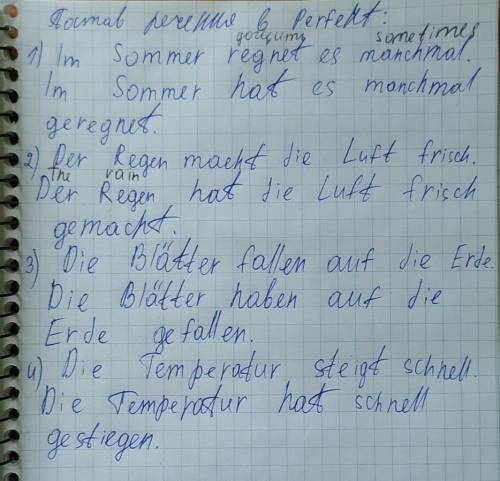 Постав речення в Perfekt:
дощити sometimes
1) Im Sommer regnet es manchmal.
Im Sommer hat es manchmal
geregnet.
2) Der Regen macht die Luft frisch.
the rain
Der Regen hat die Luft frisch
gemacht.
3) Die Blätter fallen auf die Erde.
Die Blätter haben auf die
Erde gefallen.
4) Die Temperatur steigt schnell.
Die Temperatur hat schnell
gestiegen.